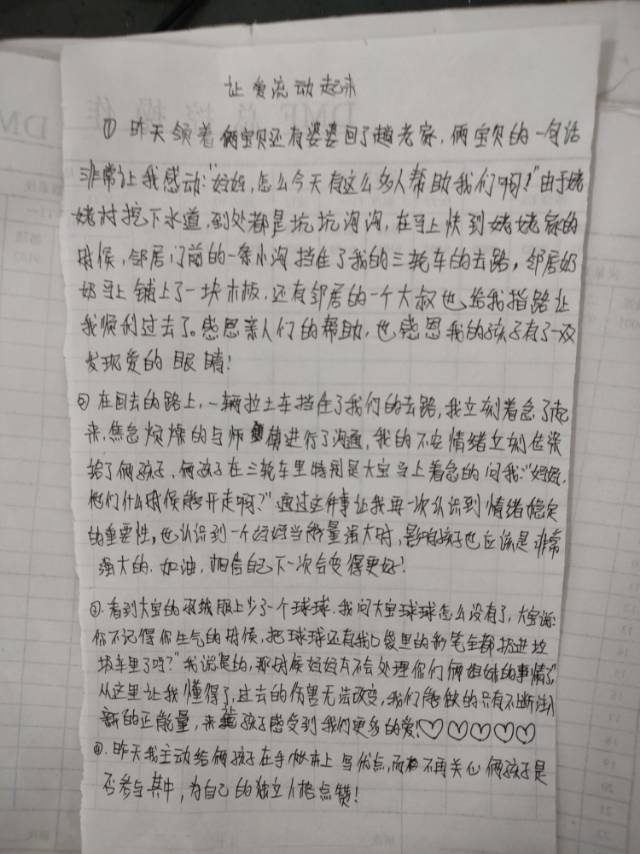 让爱流动起来
① 昨天领着俩宝贝还有婆婆回了趟老家,俩宝贝的一句话
非常让我感动:"妈妈,怎么今天有这么多人帮助我们啊?"由于姥
姥村挖下水道,到处都是坑坑沟沟,在马上快到姥姥家的
时候,邻居门前的一条小沟挡住了我的三轮车的去路,邻居奶
奶马上铺上了一块木板,还有邻居的一个大叔也给我指路让
我顺利过去了。感恩亲人们的帮助,也感恩我的孩子有了一双
发现爱的眼睛!
② 在回去的路上,一辆拉土车挡住了我们的去路,我立刻着急了起
来,焦急烦燥的与师傅进行了沟通,我的不安情绪立刻传染
给了俩孩子,俩孩子在三轮车里特别是大宝马上着急的问我:"妈妈,
他们什么时候能开走啊?"通过这件事让我再一次认识到情绪稳定
的重要性,也认识到一个妈妈当能量强大时,影响孩子也应该是非常
强大的.加油,相信自己下一次会变得更好!
③.看到大宝的羽绒服上少了一个球球.我问大宝球球怎么没有了,大宝说:
你不记得你生气的时候,把球球还有我口袋里的粉笔全都扔进垃
圾车里了吗?"我说是的,那时候妈妈太不会处理你们俩姐妹的事情了
从这里让我懂得了,过去的伤害无法改变,我们能做的只有不断注入
新的正能量,来让孩子感受到我们更多的爱!♡♡♡♡♡
④.昨天我主动给俩孩子在手帐本上写优点,而不再关心俩孩子是
否参与其中,为自己的独立人格点赞!